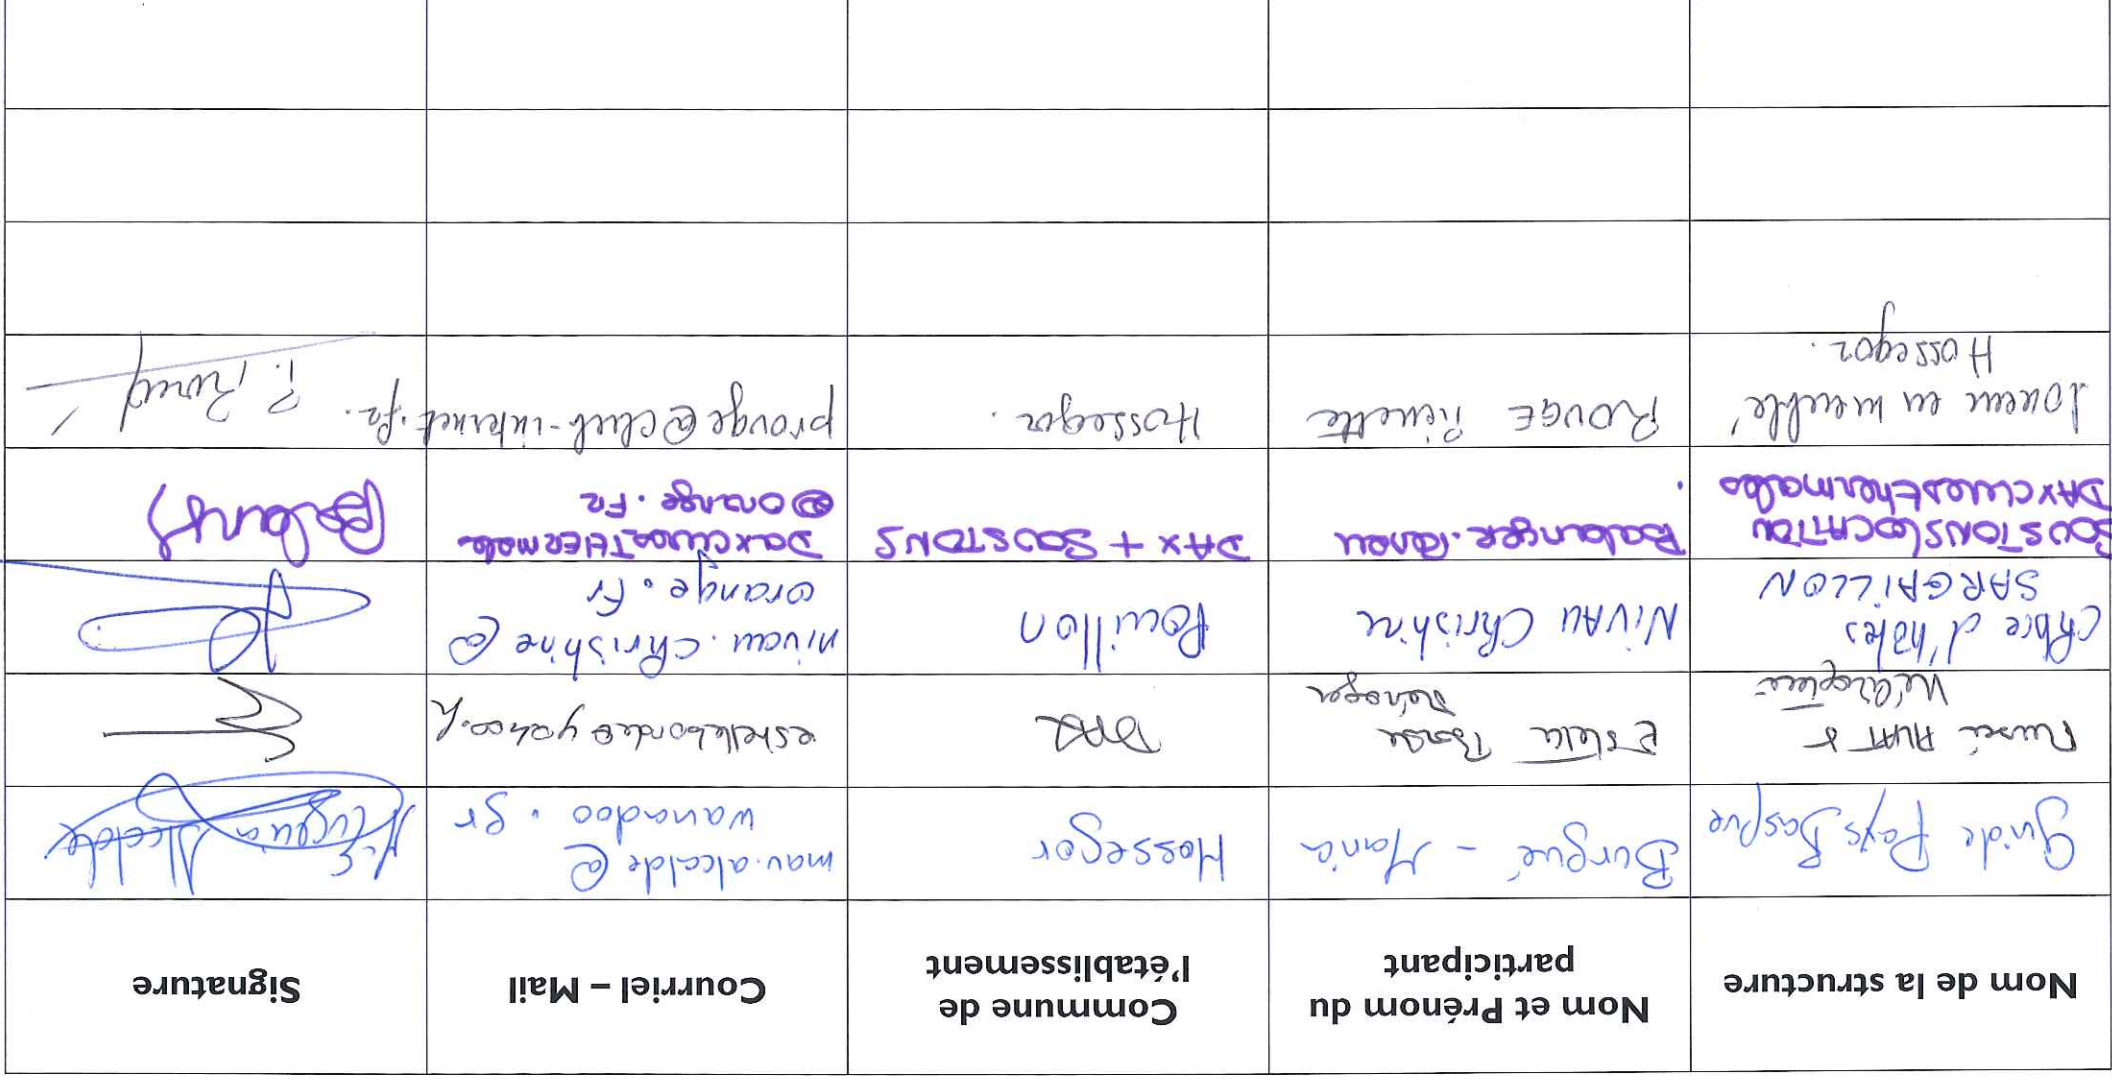 Nom de la structure
Nom et Prénom du participant
Commune de l'établissement
Courriel – Mail
Signature
Guide Pays Basque
Burgué - Maria
Hossegor
mav.alcalde@
wanadoo.gr
Alcalde
Musée ALAT &
Estelle Borde
DAX
estelleborde@yahoo.fr
Chbre d'hôtes
SARGAILLON
NIVAU Christine
Pouillon
nivau.christine@
orange.fr
SOUSTONS LOCATION
DAXCURESthermales
DAX + SOUSTONS
DaxcuresTHERMales
@orange.FR
loueur en meublé
Hossegor.
ROUGE Pierrette
Hossegor.
prouge@club-internet.fr.
P. Rouge